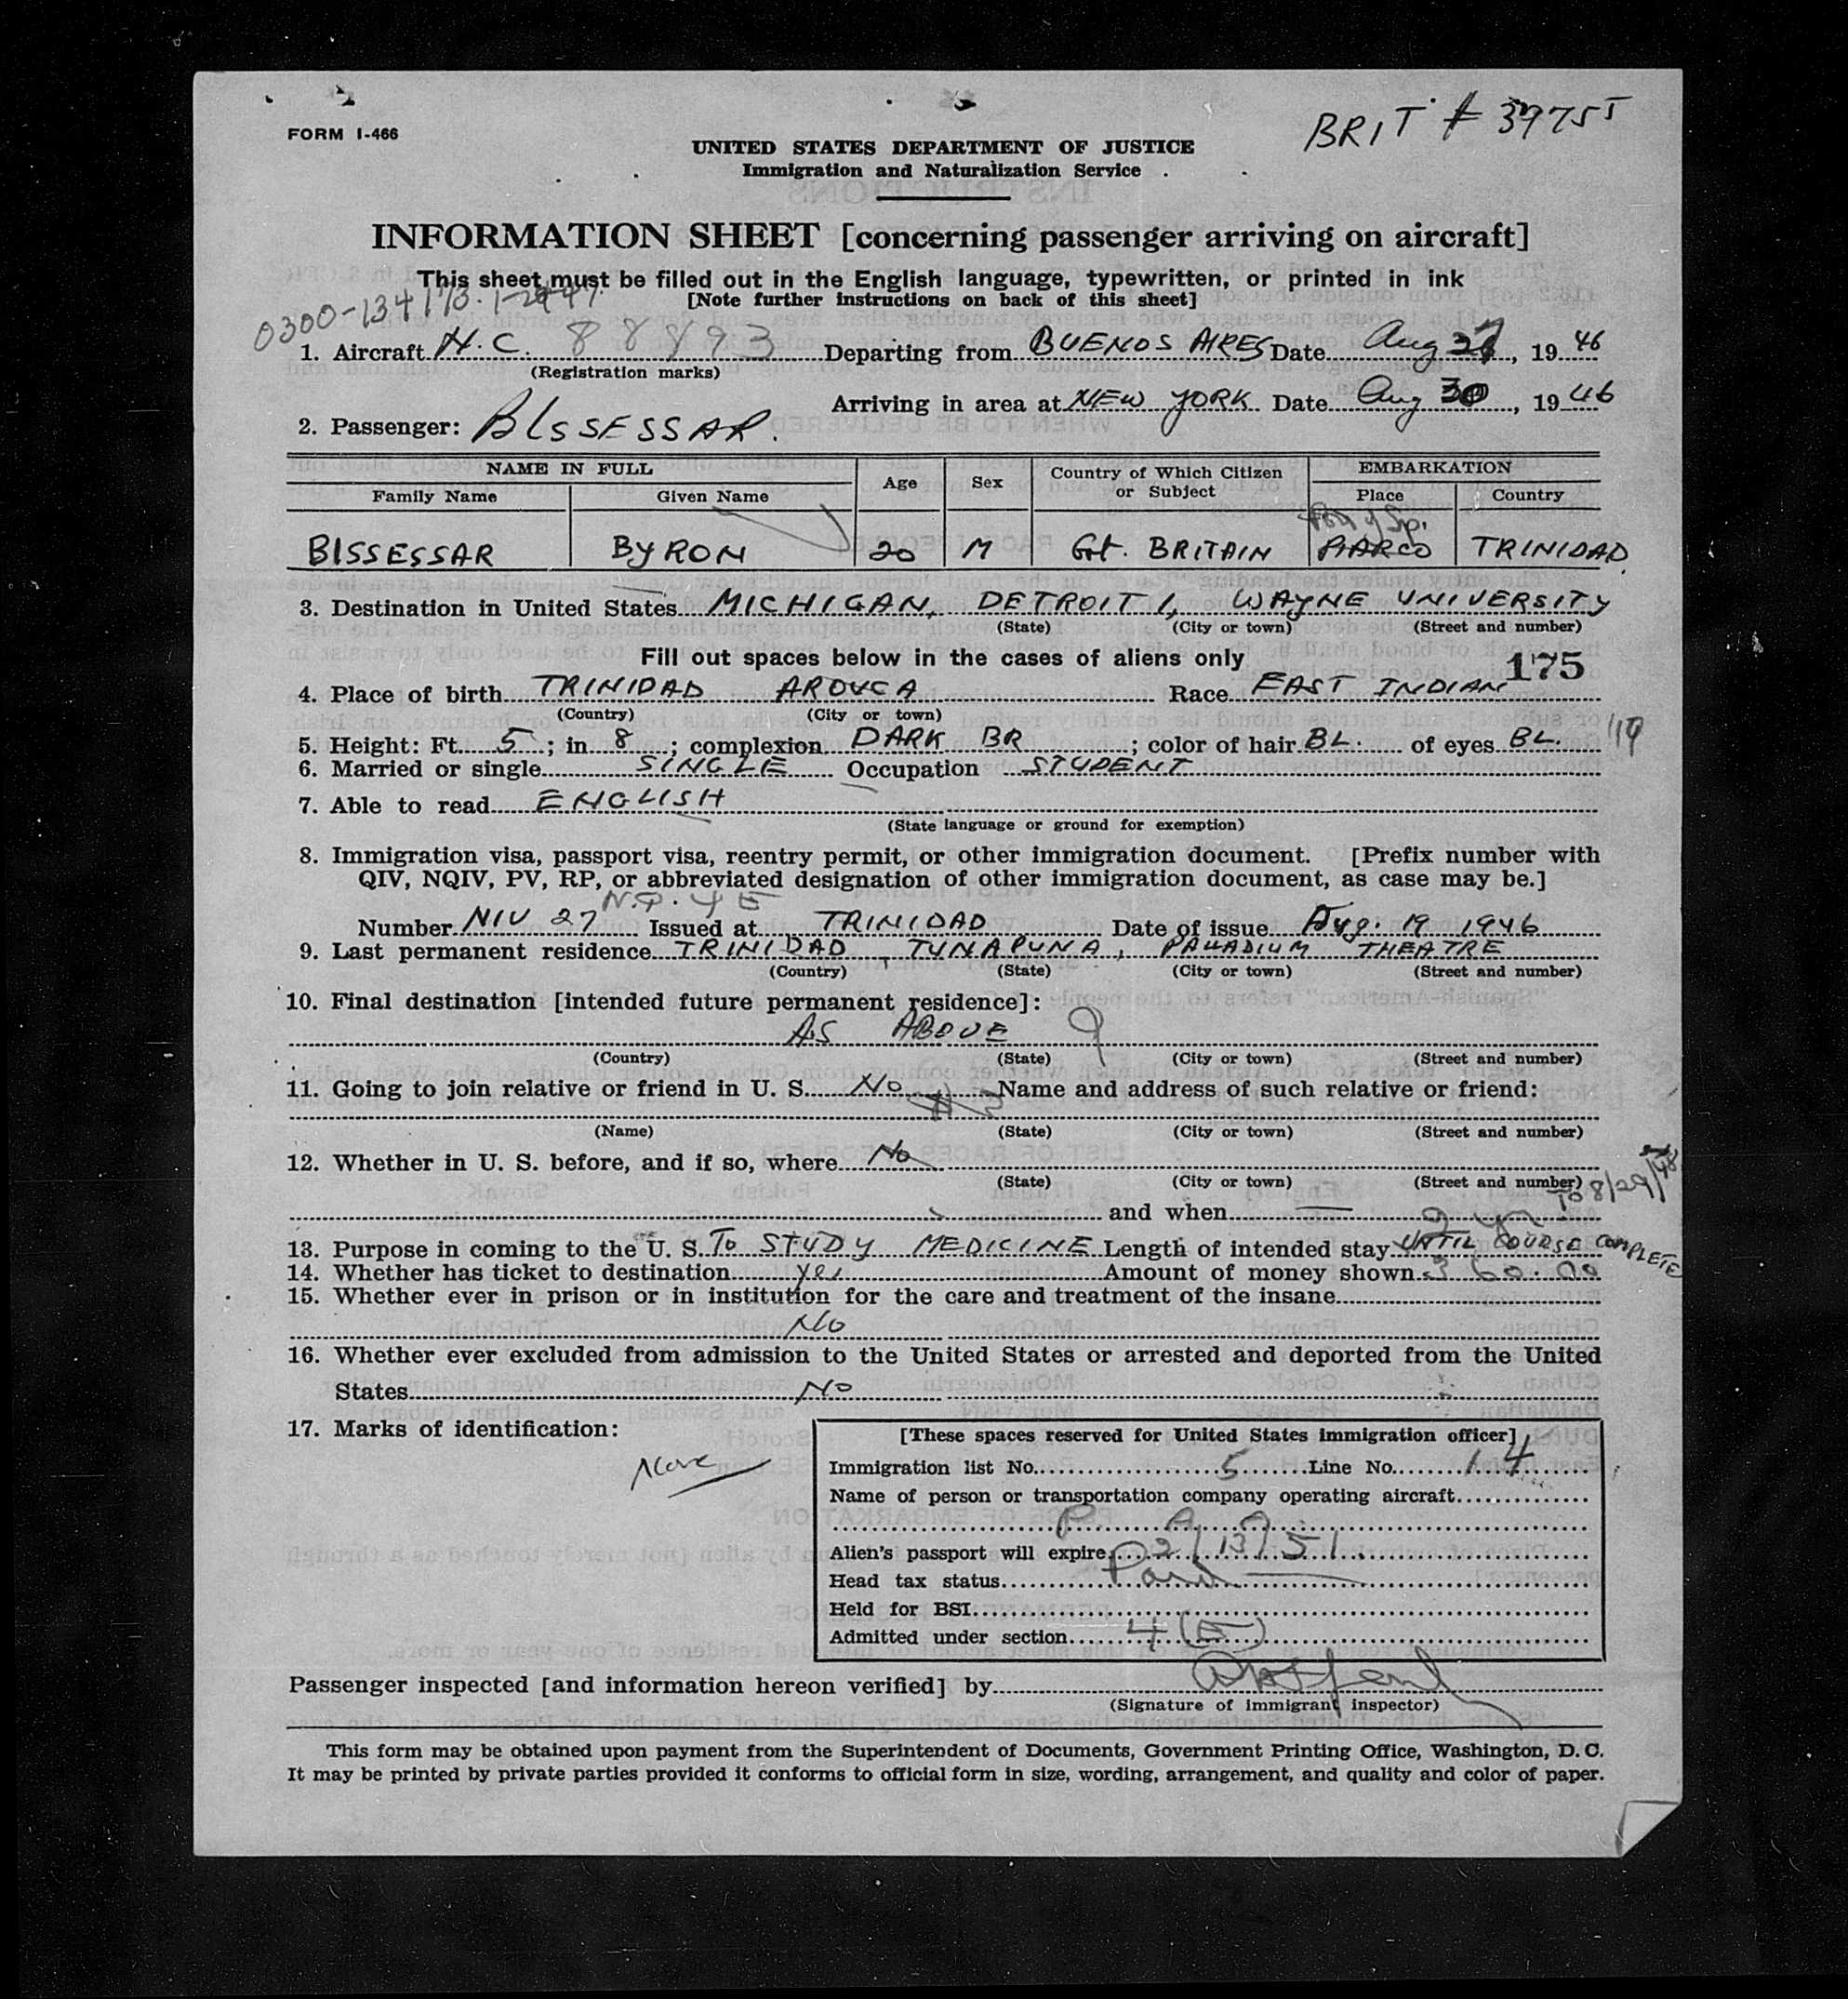 BRIT # 39755
FORM I-466
UNITED STATES DEPARTMENT OF JUSTICE
Immigration and Naturalization Service
INFORMATION SHEET [concerning passenger arriving on aircraft]
This sheet must be filled out in the English language, typewritten, or printed in ink
[Note further instructions on back of this sheet]
0300-134173.
1. Aircraft N.C. 88893 Departing from BUENOS AIRES Date Aug 27, 19 46
(Registration marks)
Arriving in area at NEW YORK Date Aug 30, 19 46
2. Passenger: BISSESSAR.
NAME IN FULL Age Sex Country of Which Citizen or Subject EMBARKATION
Family Name Given Name Place Country
Port of Sp.
BISSESSAR BYRON 20 M Gt. BRITAIN PIARCO TRINIDAD.
3. Destination in United States MICHIGAN, DETROIT 1, WAYNE UNIVERSITY
(State) (City or town) (Street and number)
Fill out spaces below in the cases of aliens only 175
4. Place of birth TRINIDAD AROUCA Race EAST INDIAN
(Country) (City or town)
5. Height: Ft. 5; in 8; complexion DARK BR; color of hair BL. of eyes BL.
6. Married or single SINGLE Occupation STUDENT
7. Able to read ENGLISH
(State language or ground for exemption)
8. Immigration visa, passport visa, reentry permit, or other immigration document. [Prefix number with
QIV, NQIV, PV, RP, or abbreviated designation of other immigration document, as case may be.]
Number NIV 27 Issued at TRINIDAD Date of issue Aug. 19 1946
9. Last permanent residence TRINIDAD, TUNAPUNA, PALLADIUM THEATRE
(Country) (State) (City or town) (Street and number)
10. Final destination [intended future permanent residence]:
AS ABOVE
(Country) (State) (City or town) (Street and number)
11. Going to join relative or friend in U. S. No Name and address of such relative or friend:
(Name) (State) (City or town) (Street and number)
12. Whether in U. S. before, and if so, where No
(State) (City or town) (Street and number)
To 8/29/48
and when —
2 yr
13. Purpose in coming to the U. S. To STUDY MEDICINE Length of intended stay UNTIL COURSE COMPLETE
14. Whether has ticket to destination Yes Amount of money shown 360.00
15. Whether ever in prison or in institution for the care and treatment of the insane
No
16. Whether ever excluded from admission to the United States or arrested and deported from the United
States No
17. Marks of identification:
None
[These spaces reserved for United States immigration officer]
Immigration list No. 5 Line No. 14
Name of person or transportation company operating aircraft
P. A. A.
Alien's passport will expire 2/13/51.
Head tax status Paid
Held for BSI
Admitted under section 4(E)
Passenger inspected [and information hereon verified] by
(Signature of immigrant inspector)
This form may be obtained upon payment from the Superintendent of Documents, Government Printing Office, Washington, D. C.
It may be printed by private parties provided it conforms to official form in size, wording, arrangement, and quality and color of paper.